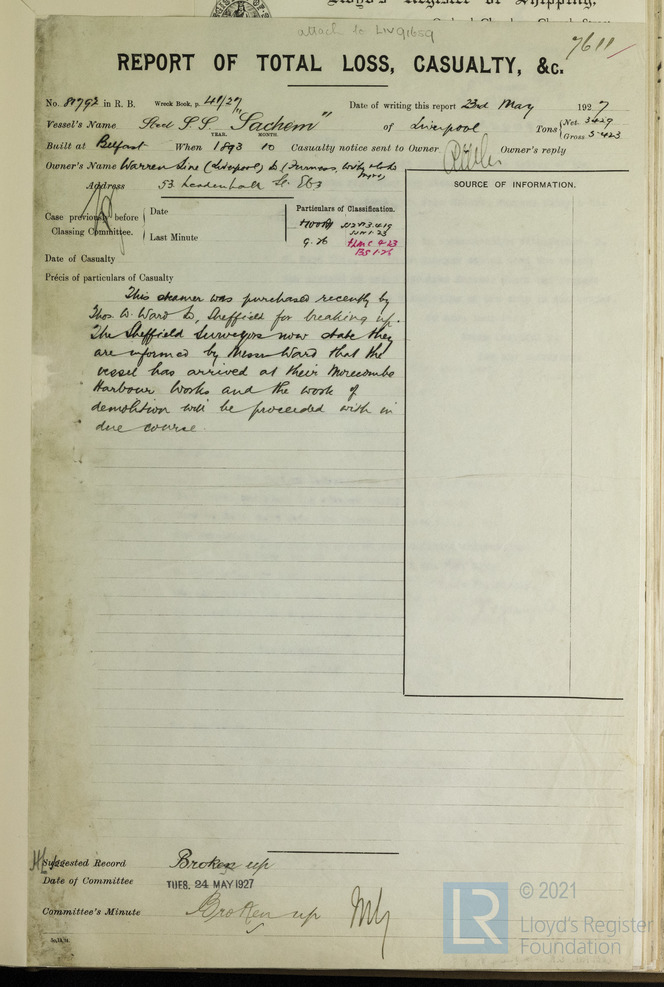 attach to LIV91659
7611
REPORT OF TOTAL LOSS, CASUALTY, &c.
No. 80792 in R. B. Wreck Book, p. 48/27 Date of writing this report 23rd May 1927
Vessel's Name Steel S.S. "Sachem" of Liverpool Tons { Net. 3429
YEAR. MONTH. Gross 5423
Built at Belfast When 1893 10 Casualty notice sent to Owner Owner's reply
Owner's Name Warren Line (Liverpool) Ld (Furness, Withy & Co Ld
Mgrs)
Address 53 Leadenhall St. EC3
SOURCE OF INFORMATION.
Case previously before Classing Committee. { Date
Last Minute
Particulars of Classification.
+100A1
9.26
+LMC 4.23
BS 1.26
Date of Casualty
Précis of particulars of Casualty
This steamer was purchased recently by
Thos W. Ward Ld, Sheffield for breaking up.
The Sheffield Surveyors now state they
are informed by Messrs Ward that the
vessel has arrived at their Morecambe
Harbour Works and the work of
demolition will be proceeded with in
due course.
Suggested Record Broken up
Date of Committee TUES. 24 MAY 1927
Committee's Minute Broken up
LR
© 2021
Lloyd's Register
Foundation